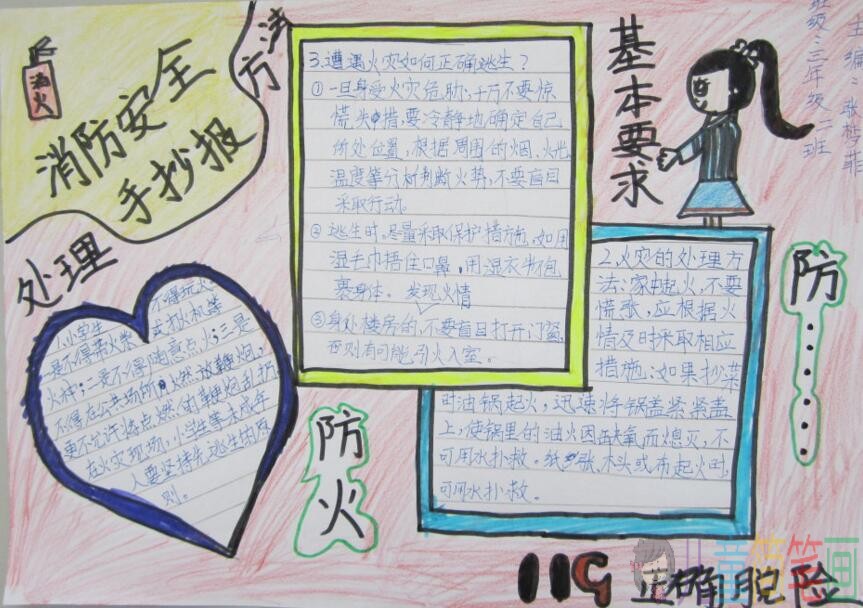 消火
消防安全
手抄报
方法
处理
3.遭遇火灾如何正确逃生？
①一旦身受火灾危胁，千万不要惊
慌失措，要冷静地确定自己
所处位置，根据周围的烟、火光、
温度等分析判断火势，不要盲目
采取行动。
②逃生时，尽量采取保护措施，如用
湿毛巾捂住口鼻，用湿衣书包
裹身体。
发现火情
③身处楼房的，不要盲目打开门窗，
否则有可能引火入室。
基本要求
主编：张梦菲
班级：三年级二班
1.小学生
不得玩火。
一是不得带火柴
或打火机等
火种；二是不得随意点火；三是
不得在公共场所燃放鞭炮，
更不允许将点燃的鞭炮乱扔
在火灾现场，小学生等未成年
人要坚持先逃生的原
则。
2.火灾的处理方
法：家中起火，不要
慌张，应根据火
情及时采取相应
措施：如果炒菜
时油锅起火，迅速将锅盖紧紧盖
上，使锅里的油火因缺氧而熄灭，不
可用水扑救。纸张、木头或布起火时，
可用水扑救。
防……
防火
119
正确脱险
儿童简笔画